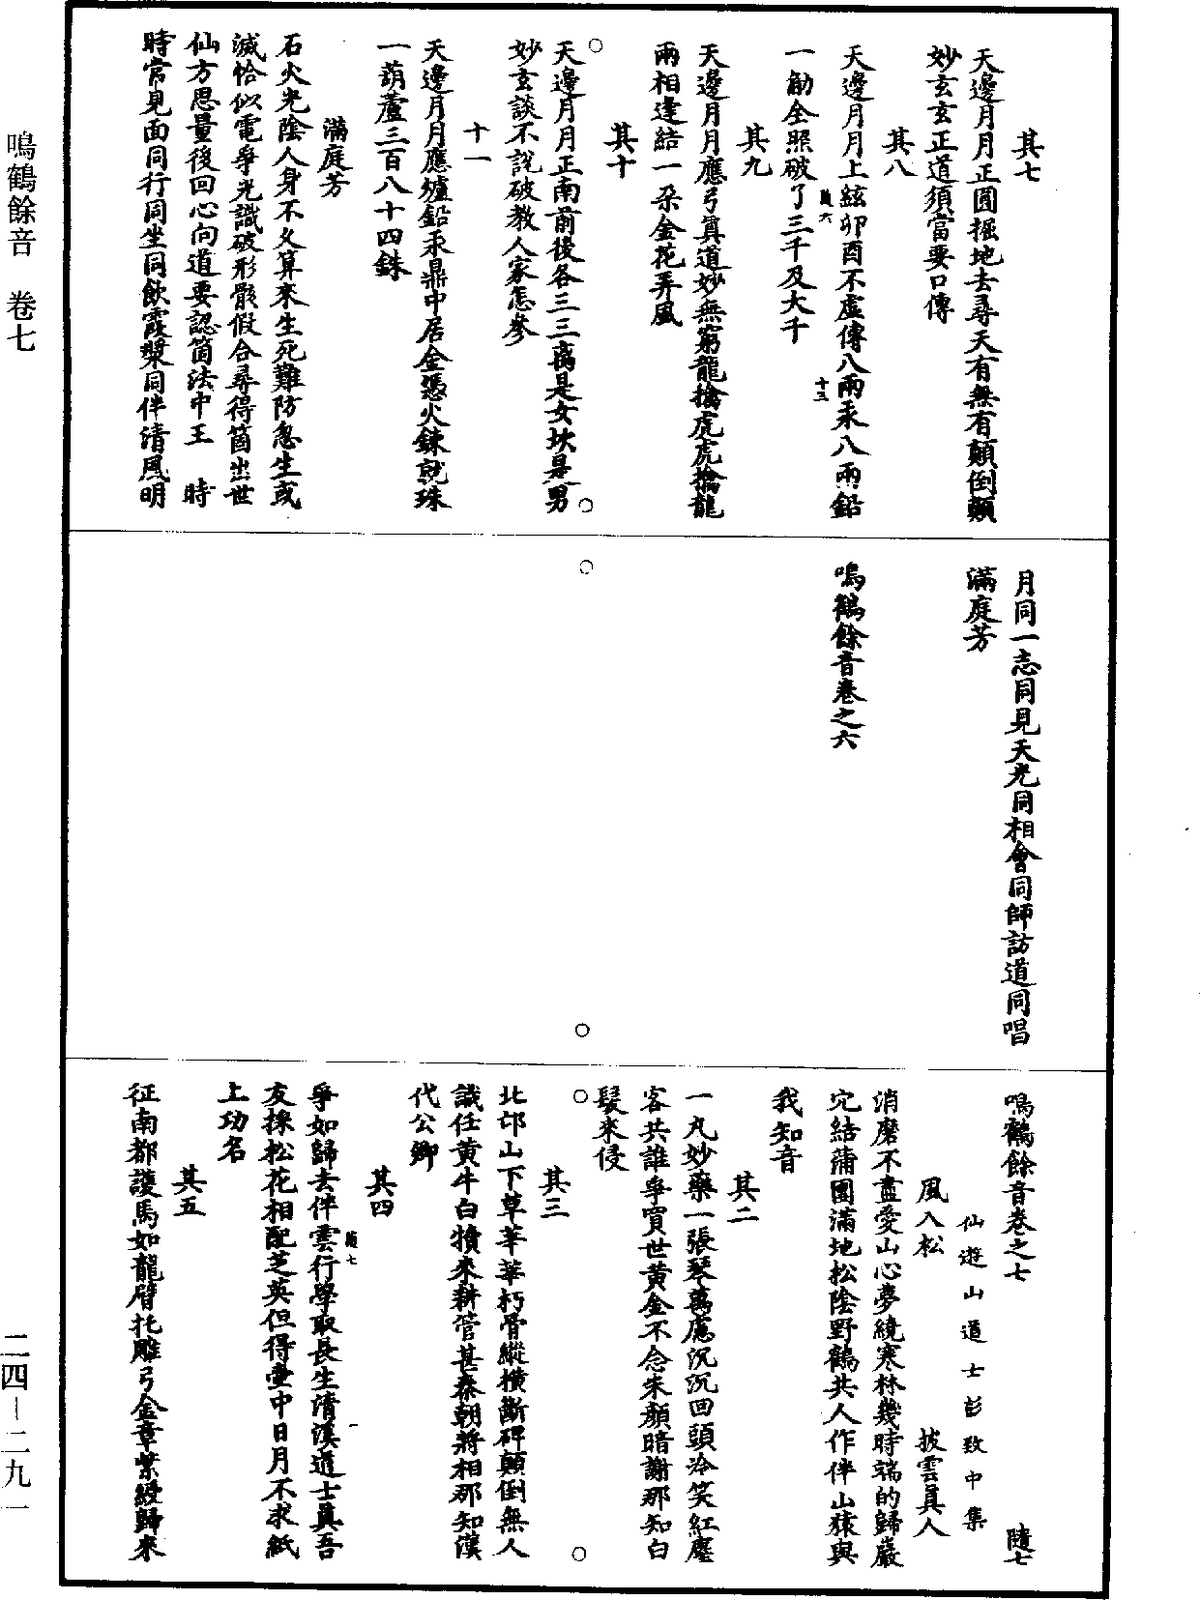 鳴鶴餘音　卷七
二四—二九一
其七
天邊月月正圓掘地去尋天有無有顛倒顛
妙玄玄正道須當要口傳
其八
天邊月月上絃卯酉不虛傳八兩汞八兩鉛
隨六
十三
一觔全照破了三千及大千
其九
天邊月月應弓真道妙無窮龍擒虎虎擒龍
兩相逢結一朶金花弄風
其十
天邊月月正南前後各三三离是女坎是男
妙玄談不說破教人家怎參
十一
天邊月月應爐鉛汞鼎中居金憑火鍊就珠
一葫蘆三百八十四銖
滿庭芳
石火光陰人身不久算來生死難防忽生或
滅恰似電爭光識破形骸假合尋得箇出世
仙方思量後回心向道要認箇法中王　時
時常見面同行同坐同飲霞漿同伴清風明
月同一志同見天光同相會同師訪道同唱
滿庭芳
鳴鶴餘音卷之六
鳴鶴餘音卷之七　隨七
仙遊山道士彭致中集
風入松　披雲真人
消磨不盡愛山心夢繞寒林幾時端的歸巖
穴結蒲團滿地松陰野鶴共人作伴山猿與
我知音
其二
一丸妙藥一張琴萬慮沉沉回頭冷笑紅塵
客共誰爭買世黃金不念朱顏暗謝那知白
髮來侵
其三
北邙山下草華華朽骨縱橫斷碑顛倒無人
識任黃牛白犢來耕管甚秦朝將相那知漢
代公卿
其四
爭如歸去伴雲行學取長生清溪道士真吾
隨七
一
友採松花相配芝英但得壷中日月不求紙
上功名
其五
征南都護馬如龍臂托雕弓金章紫綬歸來